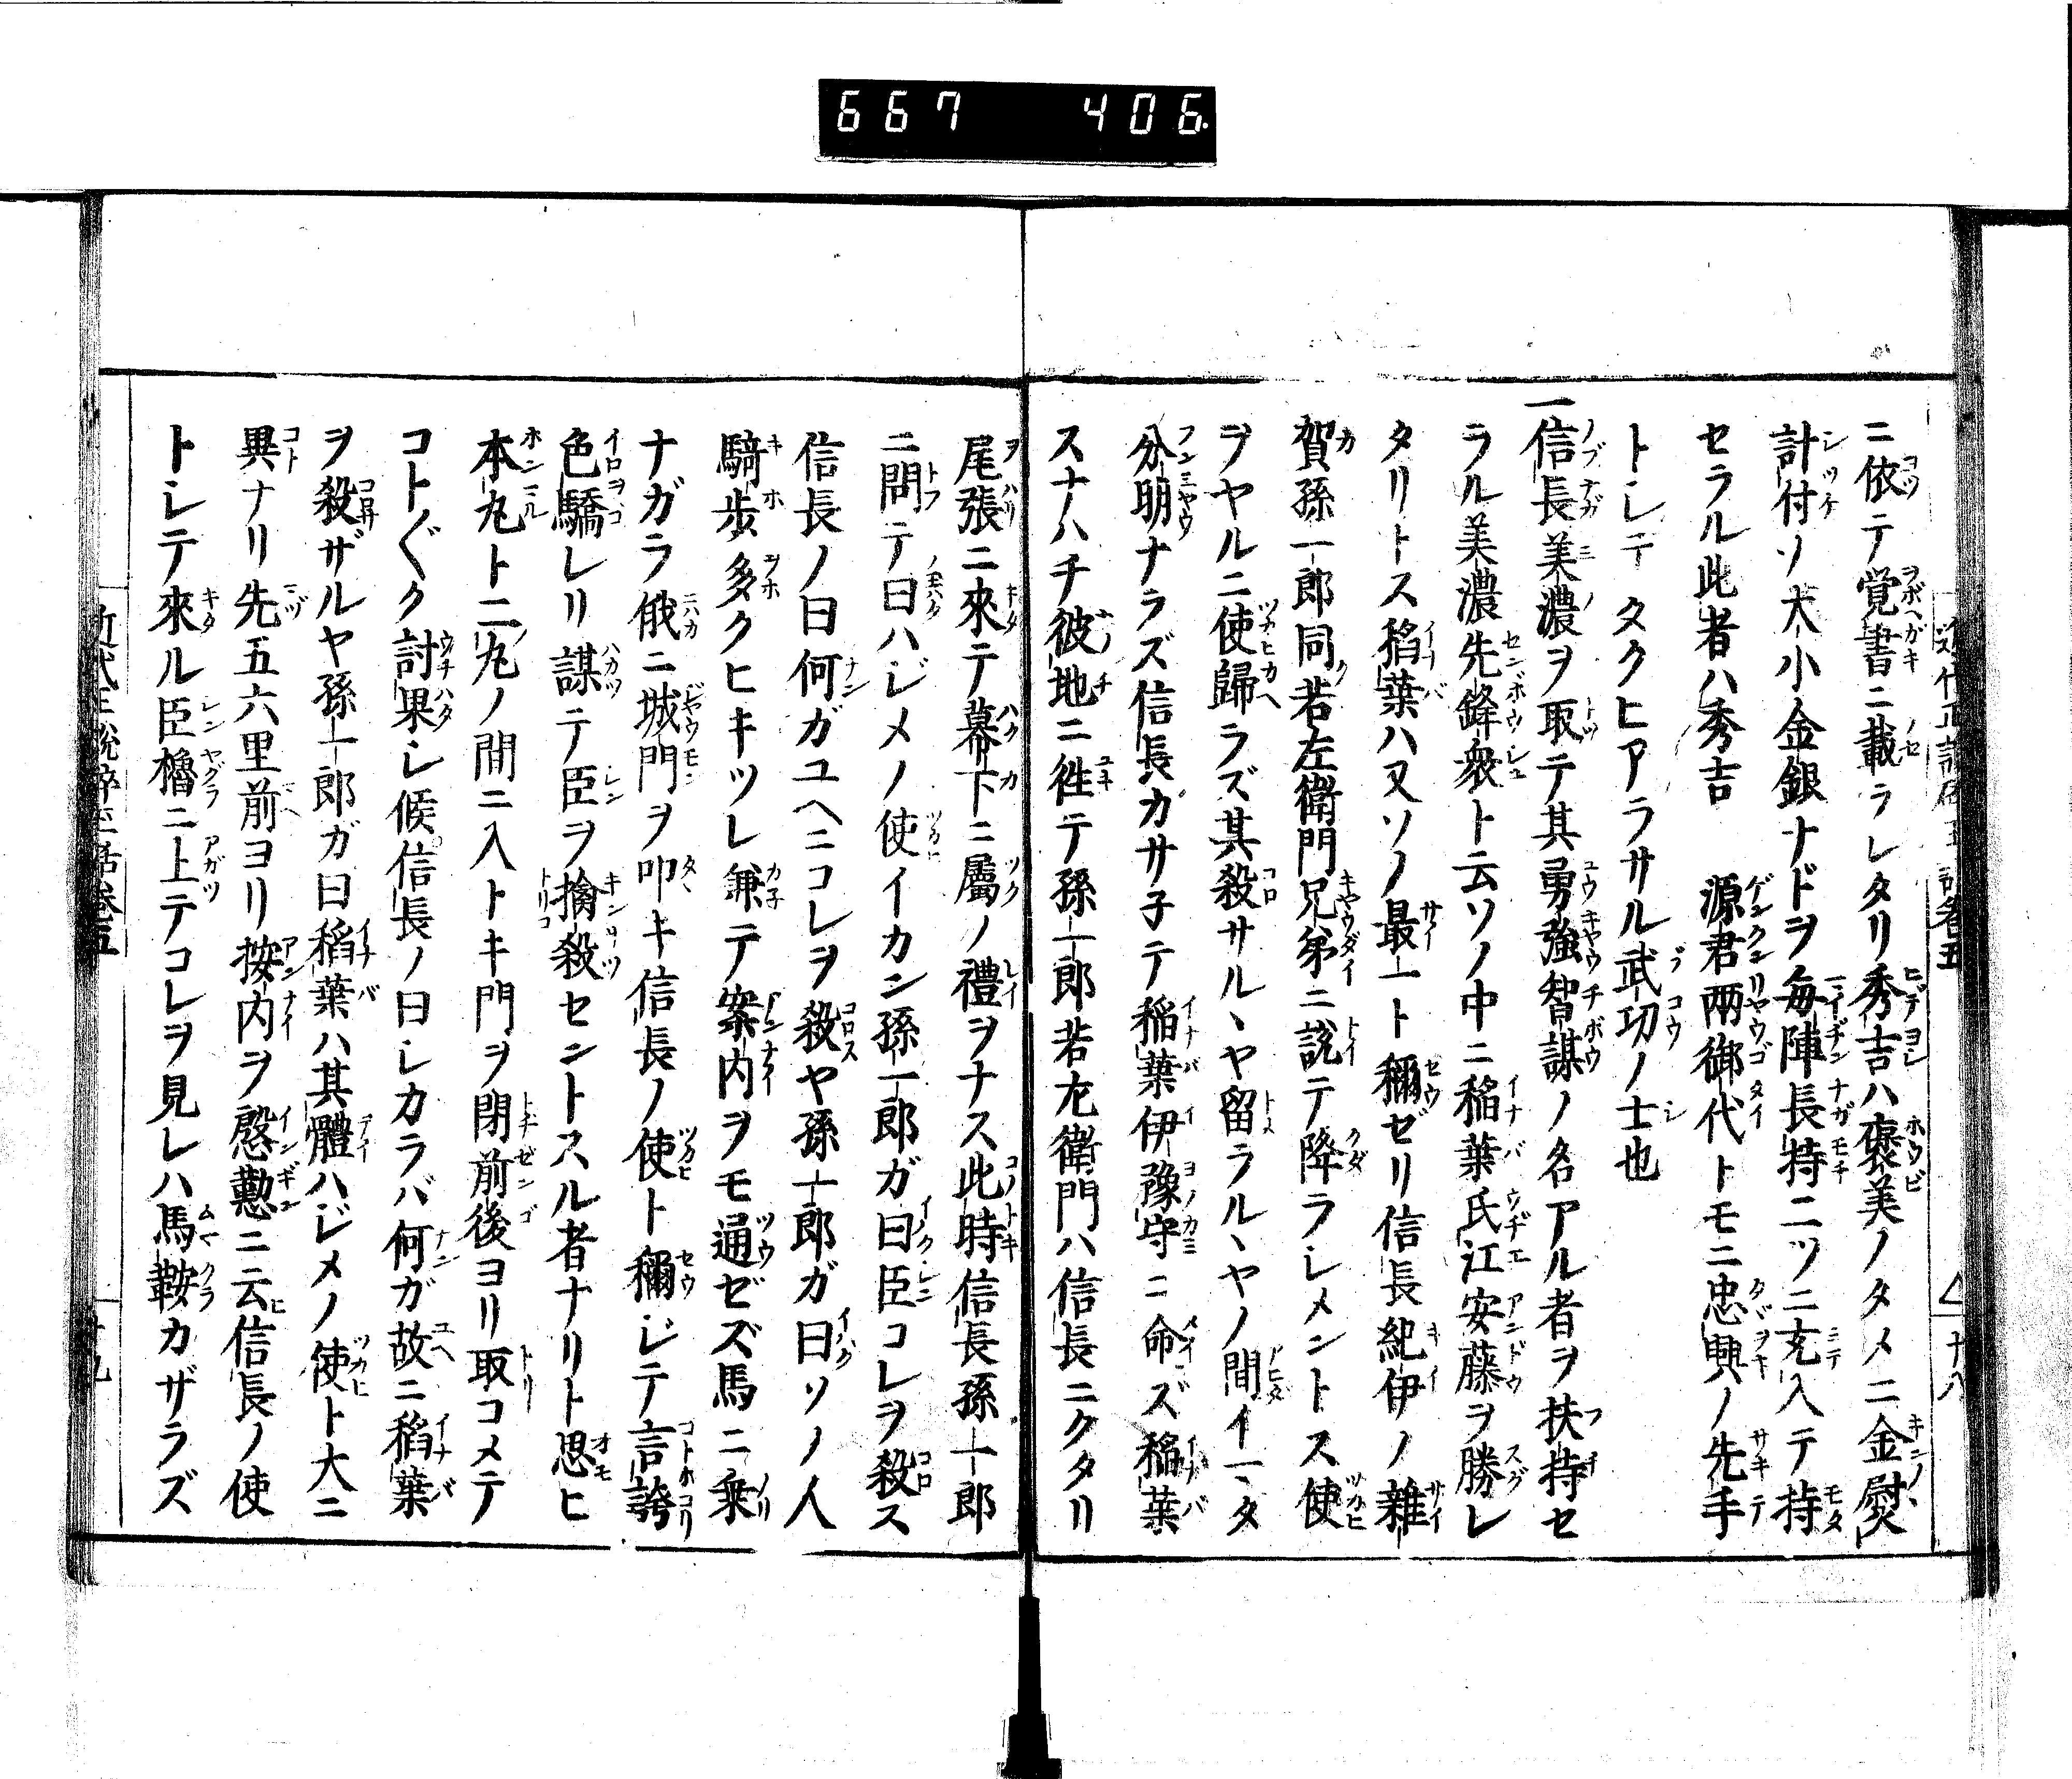 667 406
ニ依テ覚書ニ載ラレタリ秀吉ハ褒美ノタメニ金熨
計付ソ大小金銀ナドヲ毎陣長持二ツニ充入テ持
セラル此者ハ秀吉 源君兩御代トモニ忠興ノ先手
トレテタクヒアラサル武功ノ士也
一信長美濃ヲ取テ其勇強智謀ノ名アル者ヲ扶持セ
ラル美濃先鋒衆ト云ソノ中ニ稲葉氏江安藤ヲ勝レ
タリトス稻葉ハ又ソノ最一ト穪ゼリ信長紀伊ノ雜
賀孫一郎同若左衛門兄弟ニ説テ降ラレメントス使
ヲヤルニ使歸ラズ其殺サルヽヤ留ラルヽヤノ間イヽタ
分明ナラズ信長カサ子テ稲葉伊豫守ニ命ズ稲葉
スナハチ彼地ニ徃テ孫一郎若左衛門ハ信長ニクタリ
尾張ニ來テ幕下ニ屬ノ禮ヲナス此時信長孫一郎
ニ問テ曰ハジメノ使イカン孫一郎ガ曰臣コレヲ殺ス
信長ノ曰何ガユヘニコレヲ殺ヤ孫一郎ガ曰ソノ人
騎歩多クヒキツレ兼テ案内ヲモ通ゼズ馬ニ乗
ナガラ俄ニ城門ヲ叩キ信長ノ使ト穪レテ言誇
色驕レリ謀テ臣ヲ擒殺セントスル者ナリト思ヒ
本丸ト二ノ丸ノ間ニ入トキ門ヲ閉前後ヨリ取コメテ
コト〴〵ク討果レ候信長ノ曰レカラバ何ガ故ニ稻葉
ヲ殺ザルヤ孫一郎ガ曰稻葉ハ其體ハジメノ使ト大ニ
異ナリ先五六里前ヨリ按内ヲ慇懃ニ云信長ノ使
トレテ來ル臣櫓ニ上テコレヲ見レハ馬鞍カザラズ